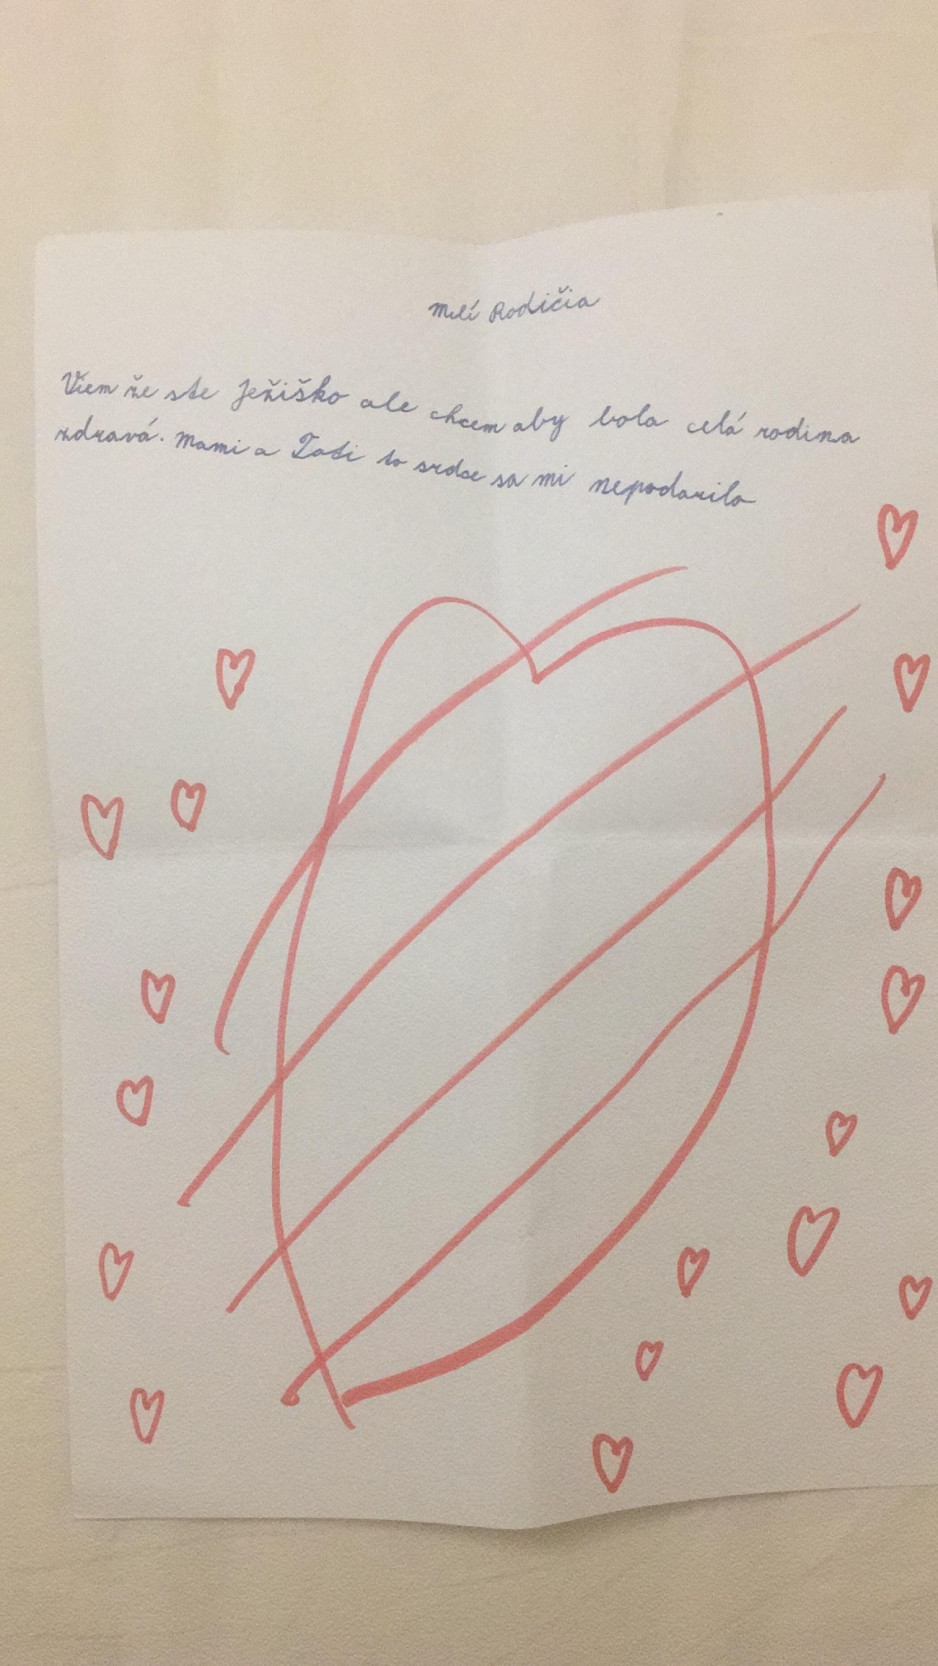 Milí Rodičia
Viem že ste Ježiško ale chcem aby bola celá rodina
zdravá. Mami a Tati to srdce sa mi nepodarilo